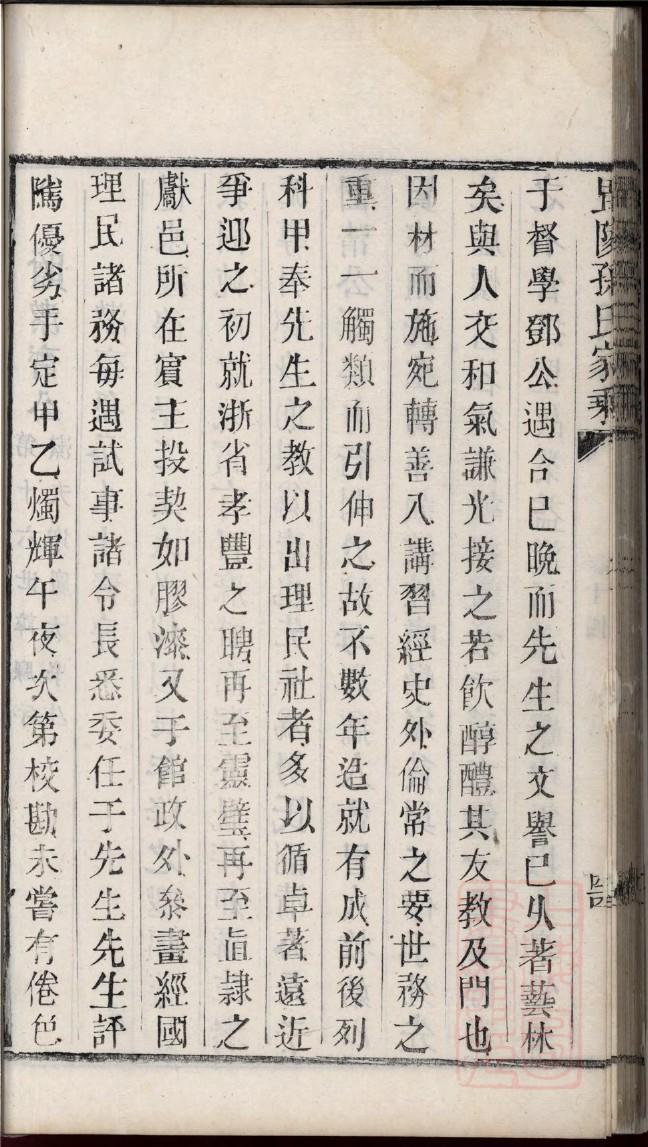 陽孫氏家乘
于督學鄧公遇合已晚而先生之文譽已久著藝林
矣與人交和氣謙光接之若飲醇醴其友教及門也
因材而施宛轉善入講習經史外倫常之要世務之
重一一觸類而引伸之故不數年造就有成前後列
科甲奉先生之教以出理民社者多以循卓著遠近
爭迎之初就浙省孝豐之聘再至靈璧再至直隷之
獻邑所在賓主投契如膠漆又于館政外叅畫經國
理民諸務每遇試事諸令長悉委任于先生先生評
隲優劣手定甲乙燭輝午夜次第校勘未嘗有倦色